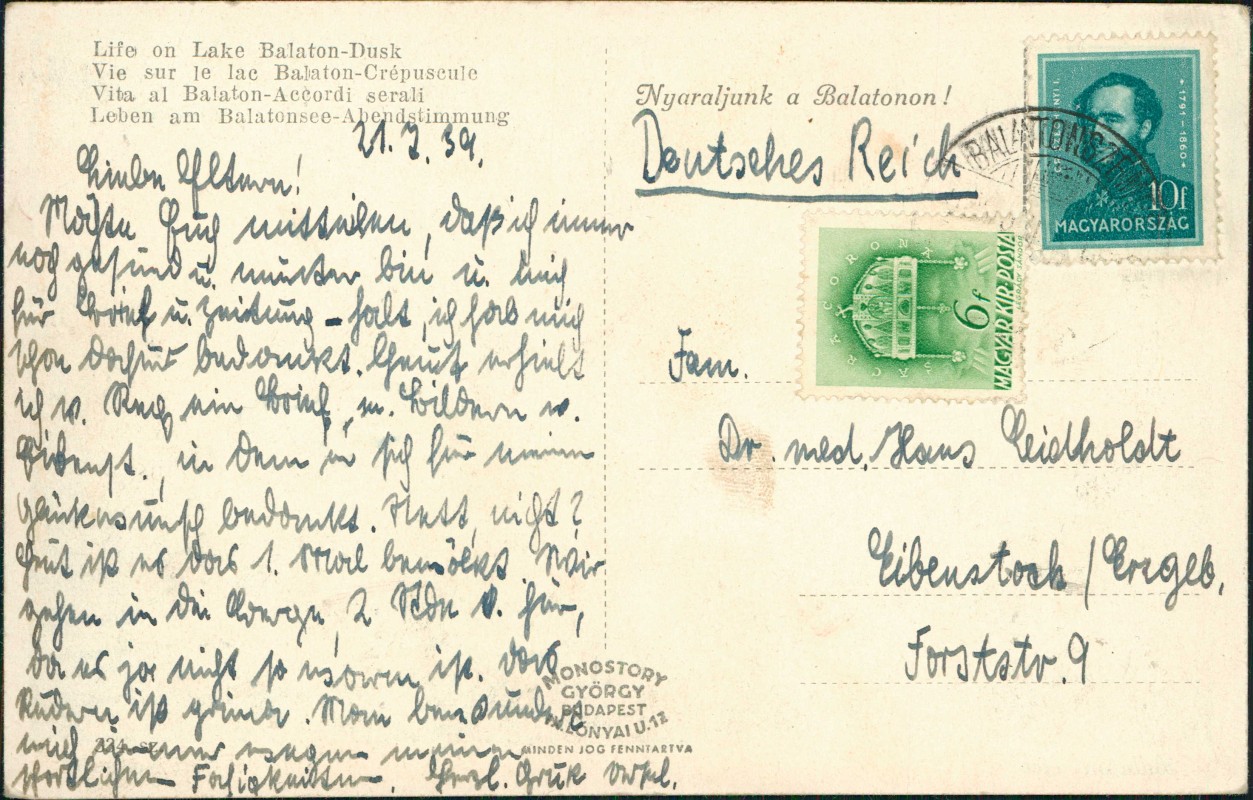 Life on Lake Balaton-Dusk
Vie sur le lac Balaton-Crépuscule
Vita al Balaton-Accordi serali
Leben am Balatonsee-Abendstimmung
21.7.39.
Liebe Eltern!
Möchte Euch mitteilen, daß ich immer
noch gesund u. munter bin u. mich
für Brief u. Zeitung – halt, ich hab mich
schon dafür bedankt. Heut erhielt
ich v. ein Brief m. Bildern v.
Eibenst., in dem er sich für meinen
Glückwunsch bedankt. Nett, nicht?
Heut ist es das 1. Mal bewölkt. Wir
gehen in die Berge, 2 Stdn v. hier,
da es ja nicht so warm ist. Das
Rudern ist prima. Man bewundert
mich immer wegen meiner
sportlichen Fähigkeiten. Herzl. Gruß
Nyaraljunk a Balatonon!
Deutsches Reich
Fam.
Dr. med. Hans Leidholdt
Eibenstock / Erzgeb.
Forststr. 9
1791–1860
10f
MAGYARORSZÁG
SACRA CORONA
6f
MAGYAR KIR. POSTA
MONOSTORY
GYÖRGY
BUDAPEST
LÓNYAI U. 12
MINDEN JOG FENNTARTVA